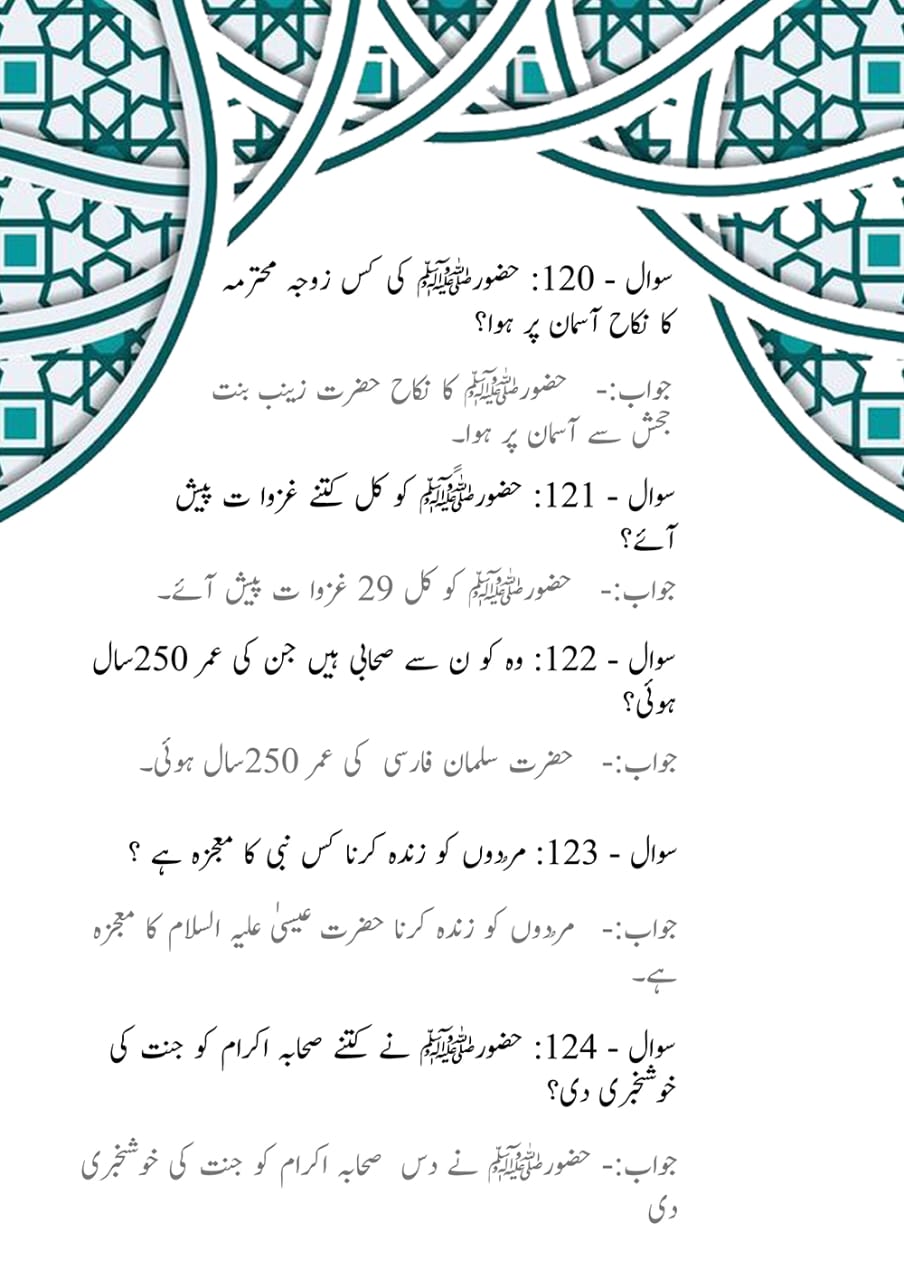 سوال - 120: حضورﷺ کی کس زوجہ محترمہ
کا نکاح آسمان پر ہوا؟
جواب:- حضورﷺ کا نکاح حضرت زینب بنت
جحش سے آسمان پر ہوا۔
سوال - 121: حضورﷺً کو کل کتنے غزوا ت پیش
آئے؟
جواب:- حضورﷺ کو کل 29 غزوا ت پیش آئے۔
سوال - 122: وہ کو ن سے صحابی ہیں جن کی عمر 250سال
ہوئی؟
جواب:- حضرت سلمان فارسی کی عمر 250سال ہوئی۔
سوال - 123: مرُدوں کو زندہ کرنا کس نبی کا معجزہ ہے ؟
جواب:- مرُدوں کو زندہ کرنا حضرت عیسیٰ علیہ السلام کا معجزہ
ہے۔
سوال - 124: حضورﷺ نے کتنے صحابہ اکرام کو جنت کی
خوشخبری دی؟
جواب:- حضورﷺ نے دس صحابہ اکرام کو جنت کی خوشخبری
دی